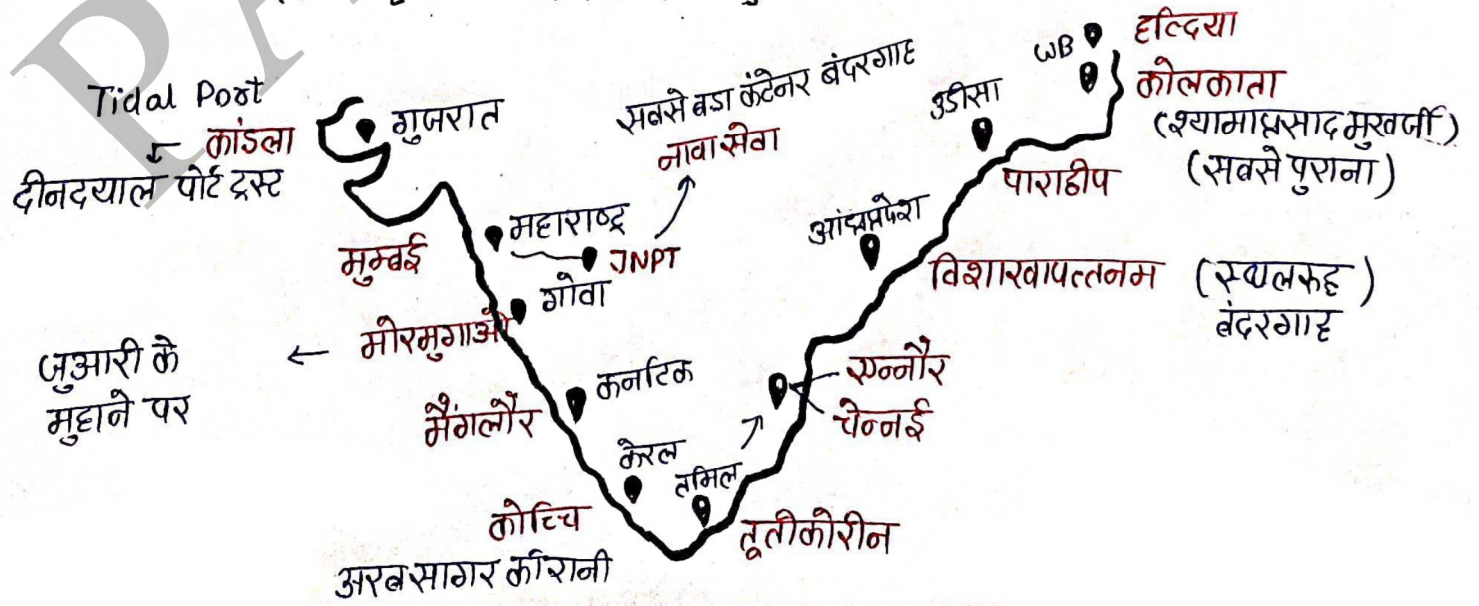 Tidal Port
← कांडला
दीनदयाल पोर्ट ट्रस्ट
गुजरात
सबसे बडा कंटेनर बंदरगाह
नावा सेवा
महाराष्ट्र
JNPT
मुम्बई
गोवा
मोरमुगाओ
←
जुआरी के
मुहाने पर
कर्नाटक
मैंगलौर
केरल
कोच्चि
अरब सागर की रानी
तमिल
तूतीकोरीन
एन्नौर
चेन्नई
आंध्राप्रदेश
विशाखापत्तनम
(स्थलरूह)
बंदरगाह
उडीसा
पारादीप
WB
हल्दिया
कोलकाता
(श्यामाप्रसाद मुखर्जी)
(सबसे पुराना)